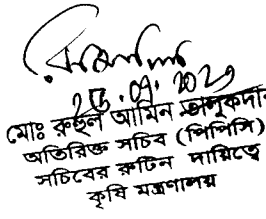 মোঃ রুহুল আমিন তালুকদার
অতিরিক্ত সচিব (পিপিসি)
সচিবের রুটিন দায়িত্বে
কৃষি মন্ত্রণালয়